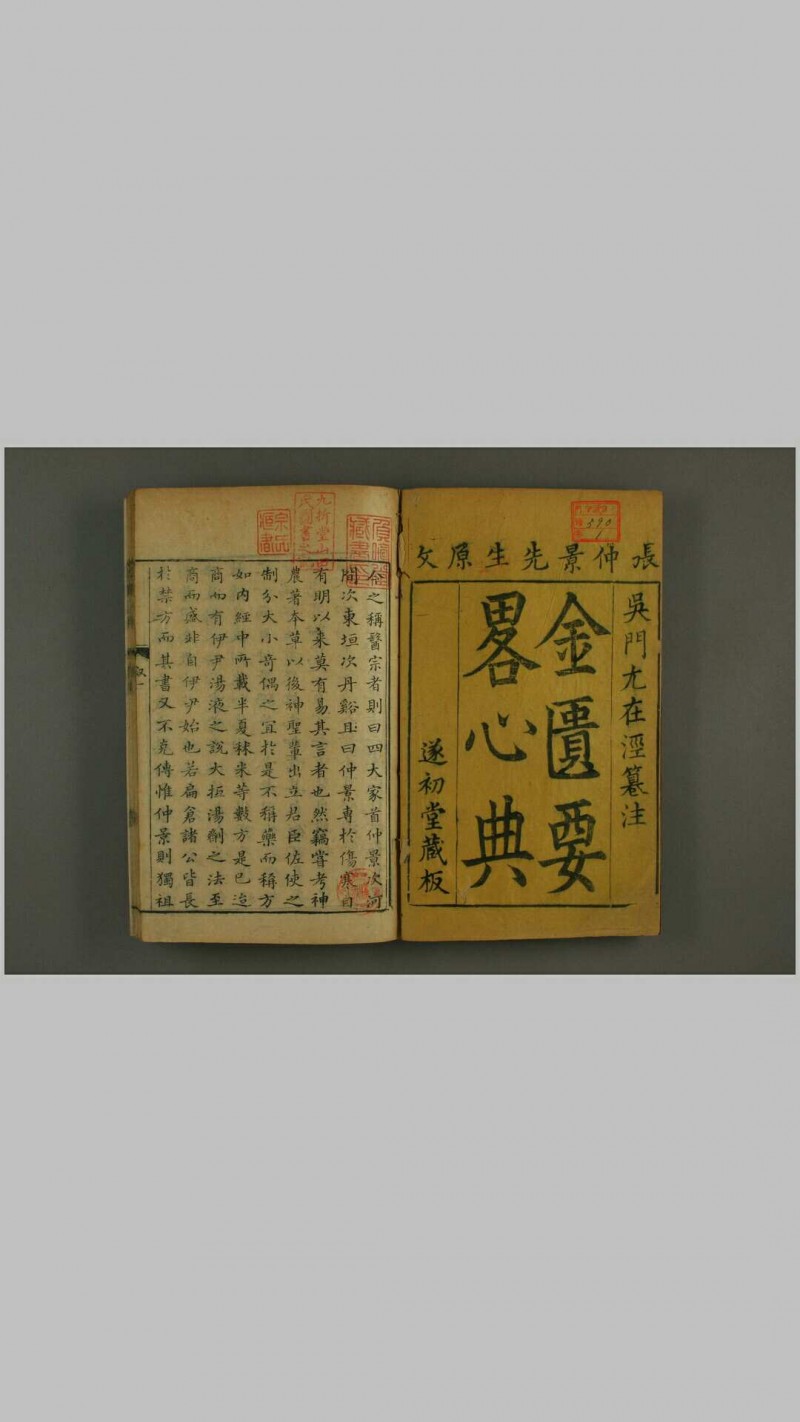 張仲景先生原文
吳門尤在涇纂注
金匱要
畧心典
遂初堂藏板
今之稱醫宗者則曰四大家首仲景次河
間次東垣次丹谿且曰仲景專於傷寒自
有明以來莫有易其言者也然竊嘗考神
農著本草以後神聖輩出立君臣佐使之
制分大小奇偶之宜於是不稱藥而稱方
如内經中所載半夏秫米等數方是已迨
商而有伊尹湯液之說大抵湯劑之法至
商而盛非自伊尹始也若扁倉諸公皆長
於禁方而其書又不克傳惟仲景則獨祖